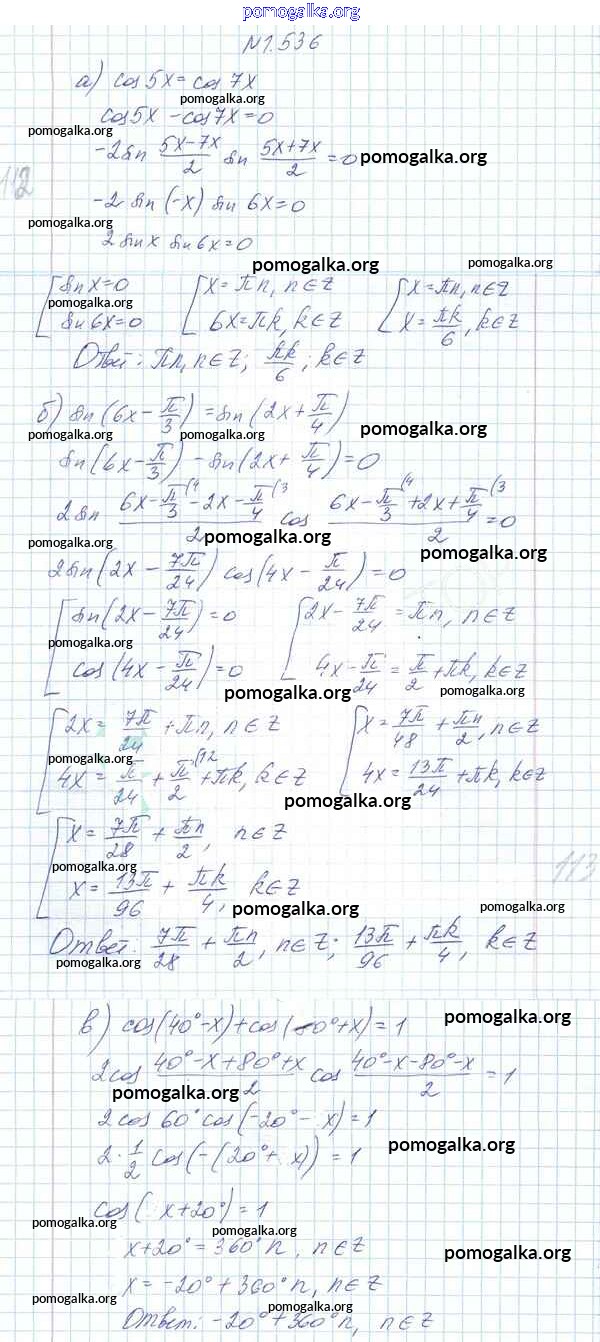 pomogalka.org
N 1.536
а) cos 5x = cos 7x
pomogalka.org
cos 5x - cos 7x = 0
pomogalka.org
-2 sin (5x-7x)/2 sin (5x+7x)/2 = 0 pomogalka.org
112
-2 sin (-x) sin 6x = 0
pomogalka.org
2 sin x sin 6x = 0
pomogalka.org pomogalka.org
[ sin x = 0 [ x = πn, n∈Z [ x = πn, n∈Z
pomogalka.org
sin 6x = 0 6x = πk, k∈Z x = πk/6, k∈Z
Ответ: πn, n∈Z; πk/6; k∈Z
б) sin(6x - π/3) = sin(2x + π/4)
pomogalka.org pomogalka.org pomogalka.org
sin(6x - π/3) - sin(2x + π/4) = 0
2 sin (6x - π/3 (4 - 2x - π/4 (3)/2 cos (6x - π/3 (4 + 2x + π/4 (3)/2 = 0
pomogalka.org pomogalka.org pomogalka.org
2 sin(2x - 7π/24) cos(4x - π/24) = 0
[ sin(2x - 7π/24) = 0 [ 2x - 7π/24 = πn, n∈Z
pomogalka.org
cos(4x - π/24) = 0 4x - π/24 = π/2 + πk, k∈Z
pomogalka.org pomogalka.org
[ 2x = 7π/24 + πn, n∈Z [ x = 7π/48 + πn/2, n∈Z
pomogalka.org
4x = π/24 + π/2 (12 + πk, k∈Z 4x = 13π/24 + πk, k∈Z
pomogalka.org
[ x = 7π/28 + πn/2, n∈Z
pomogalka.org
113
x = 13π/96 + πk/4, k∈Z
pomogalka.org pomogalka.org
Ответ: 7π/28 + πn/2, n∈Z; 13π/96 + πk/4, k∈Z
pomogalka.org
в) cos(40°-x) + cos(80°+x) = 1 pomogalka.org
2 cos (40°-x+80°+x)/2 cos (40°-x-80°-x)/2 = 1
pomogalka.org
2 cos 60° cos(-20° - x) = 1
2 · 1/2 cos(-(20° + x)) = 1 pomogalka.org
cos(x+20°) = 1
pomogalka.org pomogalka.org
x+20° = 360° n, n∈Z pomogalka.org
x = -20° + 360° n, n∈Z
pomogalka.org pomogalka.org
Ответ: -20° + 360° n, n∈Z